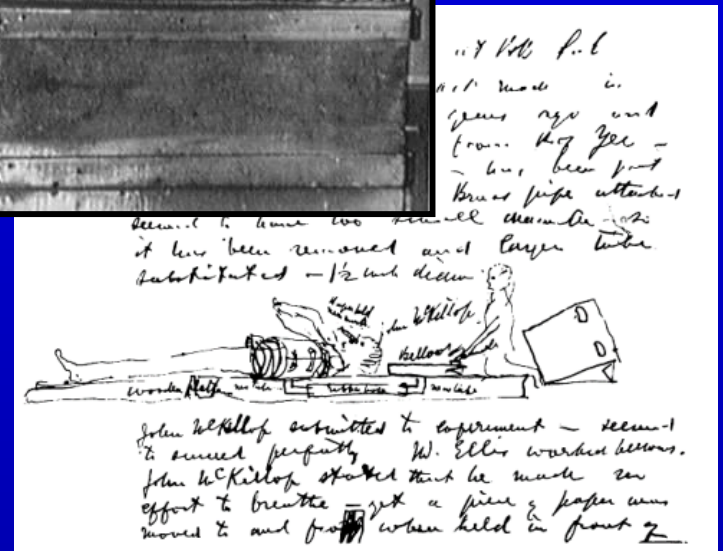 made in
years ago and
from
has been put
Brass pipe attached
seemed to have too small diameter so
it has been removed and larger tube
substituted - 1/2 inch diam
John McKillop
Bellows
wooden Platform new tube rubber hose new tube
John McKillop submitted to experiment - seemed
to succeed perfectly W. Ellis worked bellows.
John McKillop stated that he made no
effort to breathe - yet a piece of paper was
moved to and fro when held in front of